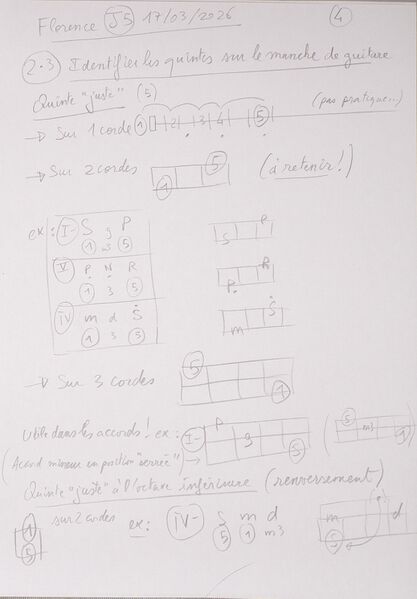 Florence J5 17/03/2026 4
2.3 Identifier les quintes sur le manche de guitare
Quinte "juste" (5)
→ Sur 1 corde 1 2 3 4 5 (pas pratique...)
→ Sur 2 cordes 1 5 (à retenir!)
ex: I- S g P
1 m3 5
S P
V P N R
1 3 5
P R
IV m d S
1 3 5
m S
→ Sur 3 cordes 5 1
Utile dans les accords! ex: I- P g S
5 m3 1
(Accord mineur en position "serrée") →
Quinte "juste" à l'octave inférieure (renversement)
1 5 sur 2 cordes ex: IV- S m d
5 1 m3
m d